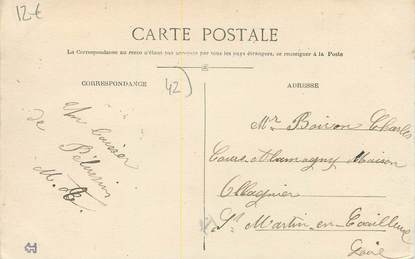 12 €
CARTE POSTALE
La Correspondance au recto n'étant pas acceptée par tous les pays étrangers, se renseigner à la Poste
CORRESPONDANCE
42
ADRESSE
Un baiser
de Pélussin
Mr Boivon Charles
Maison
Ollagnier
St Martin-en-Coailleux
Loire